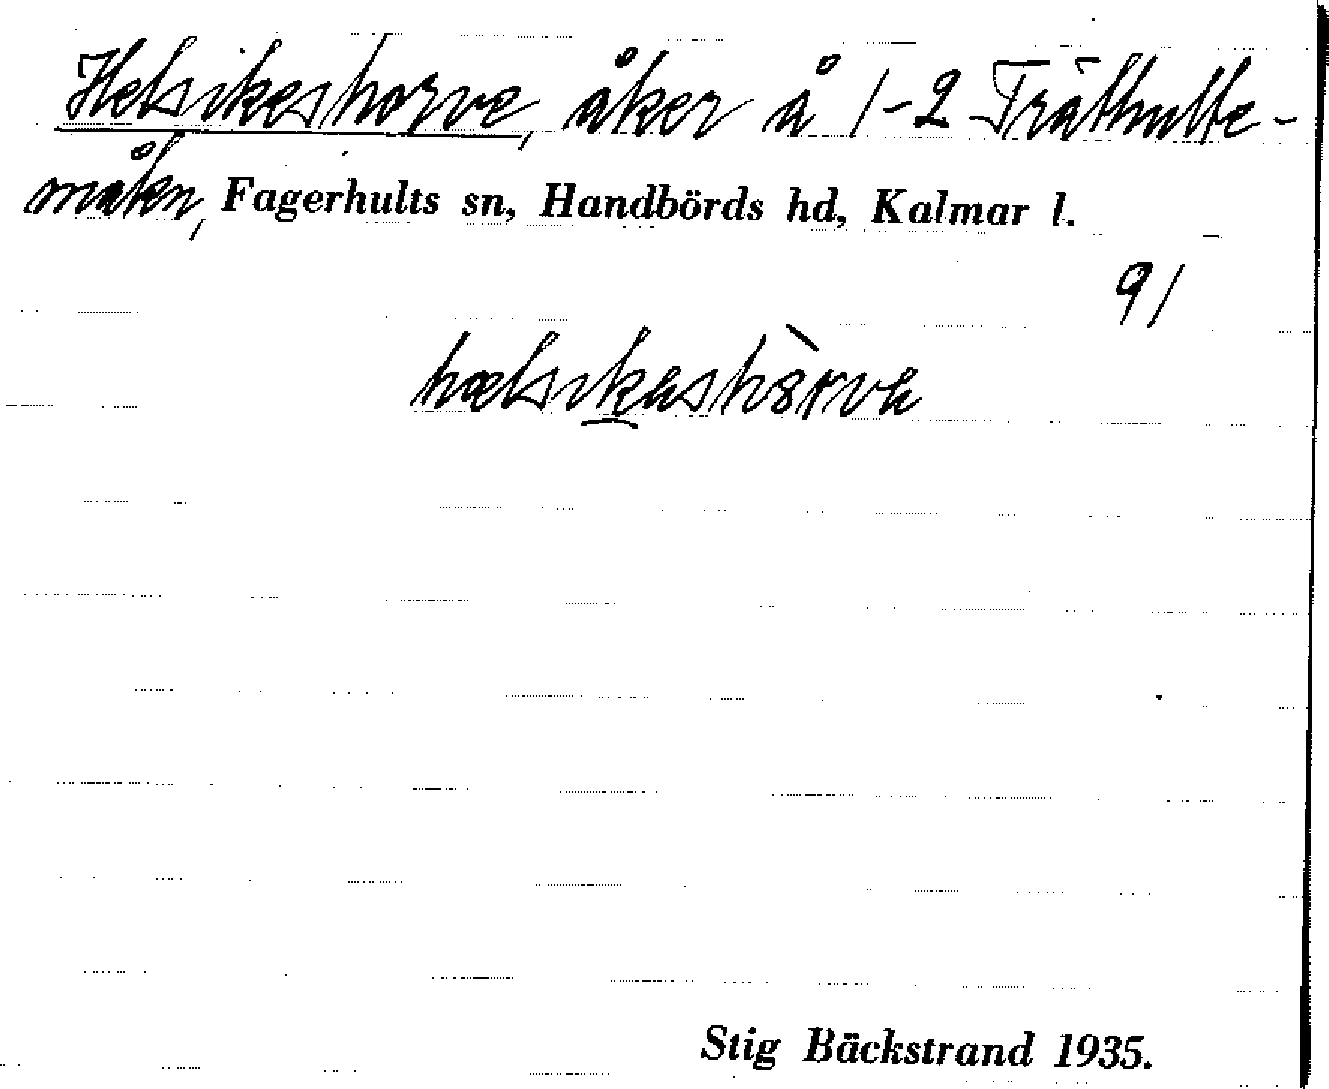 Helsikeshorve, åker å 1-2 Träthulte-
måln, Fagerhults sn, Handbörds hd, Kalmar l.
91
Stig Bäckstrand 1935.